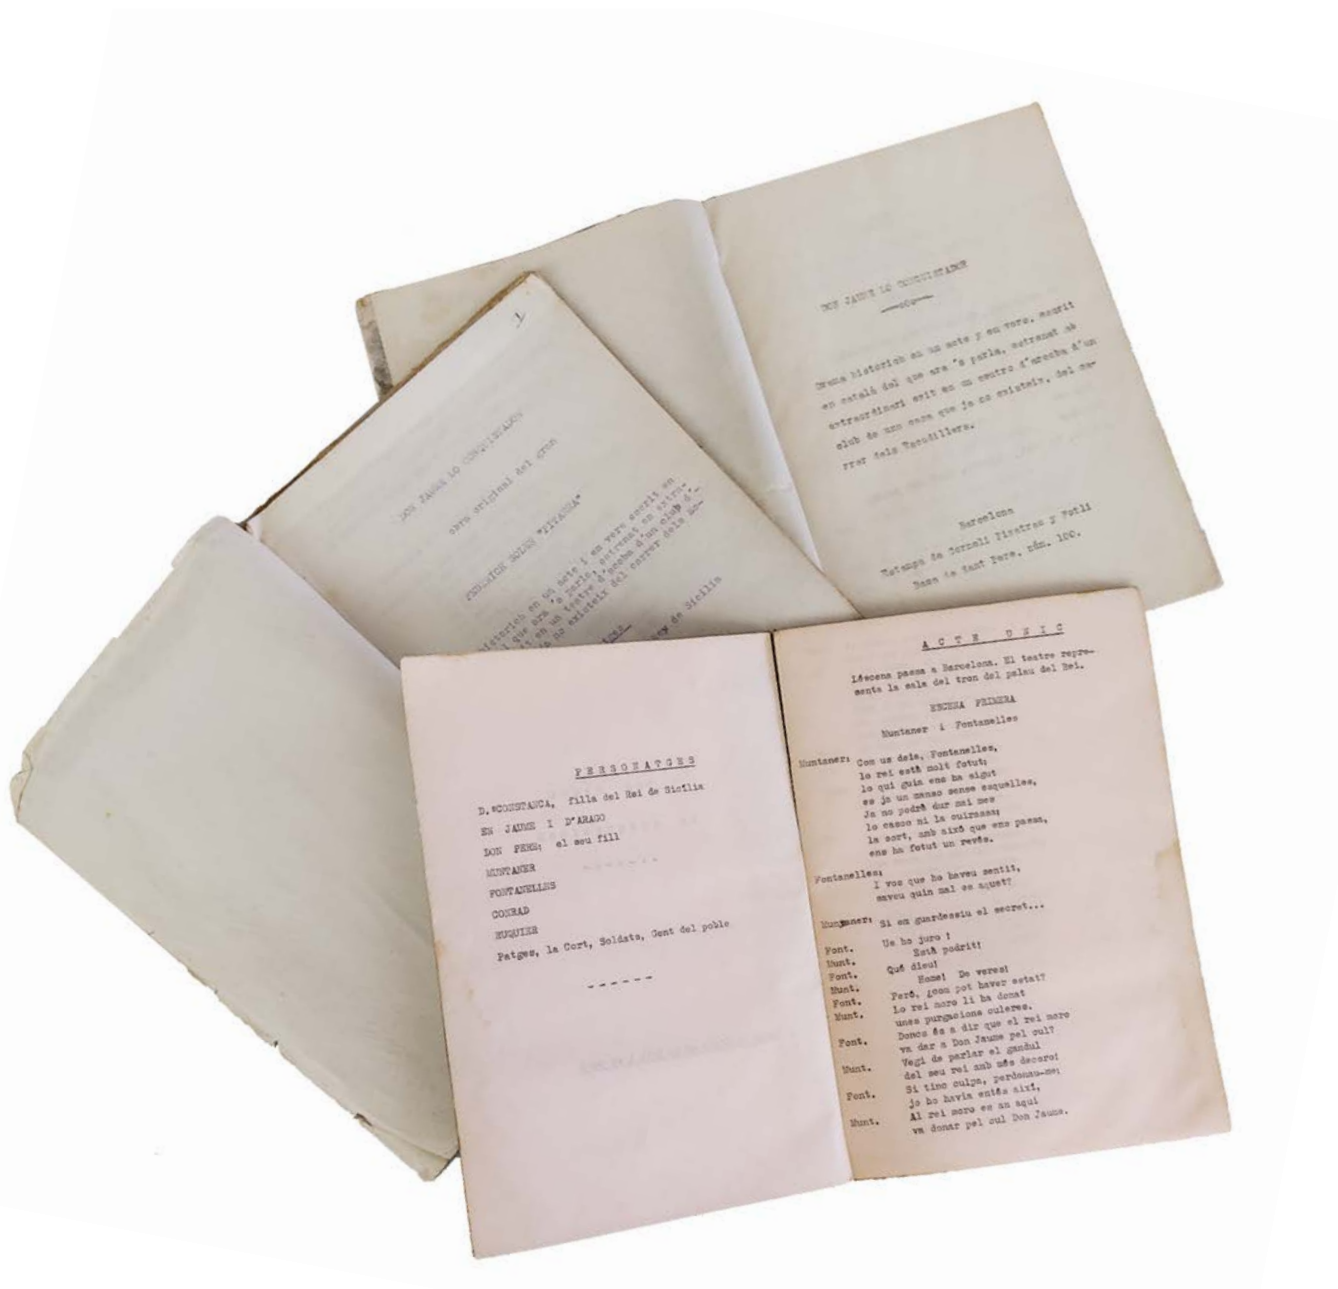 DON JAUME LO CONQUISTADOR
—oOo—
Drama historich en un acte y en vers, escrit
en catalá del que ara 's parla, estrenat ab
extraordinari exit en un teatro d'arcaba d'un
club de una casa que ja no existeix, del ca-
rrer dels Escudillers.
Barcelona
Estampa de Corneli Pixatras y Fotli
Baxa de Sant Pere, núm. 100.
1
DON JAUME LO CONQUISTADOR
obra original del gran
FEDERICH SOLER "PITARRA"
historich en un acte i en vers escrit en
que ara 's parla, estrenat en extra-
it en un teatre d'acaba d'un club d'-
no existeix del carrer dels Es-
Rey de Sicilia
PERSONATGES
D.ªCONSTANCA, filla del Rei de Sicília
EN JAUME I D'ARAGO
DON PERE; el seu fill
MUNTANER
FONTANELLES
CONRAD
RUQUIER
Patges, la Cort, Soldats, Gent del poble
------
ACTE UNIC
L'escena passa a Barcelona. El teatre repre-
senta la sala del tron del palau del Rei.
ESCENA PRIMERA
Muntaner i Fontanelles
Muntaner: Com us deia, Fontanelles,
lo rei està molt fotut;
lo qui guia ens ha sigut
es ja un manso sense esquelles,
Ja no podrà dur mai mes
lo casco ni la cuirassa;
la sort, amb això que ens passa,
ens ha fotut un revés.
Fontanelles:
I vos que ho haveu sentit,
saveu quin mal es aquet?
Muntaner: Si em guardessiu el secret...
Font. Us ho juro !
Munt. Està podrit!
Font. Qué dieu!
Munt. Home! De veres!
Font. Però, ¿com pot haver estat?
Munt. Lo rei moro li ha donat
unes purgacions culeres.
Font. Doncs és a dir que el rei moro
va dar a Don Jaume pel cul?
Munt. Vegi de parlar el gandul
del seu rei amb més decoro!
Font. Si tinc culpa, perdonau-me;
jo ho havia entés així,
Munt. Al rei moro es an aqui
va donar pel cul Don Jaume.